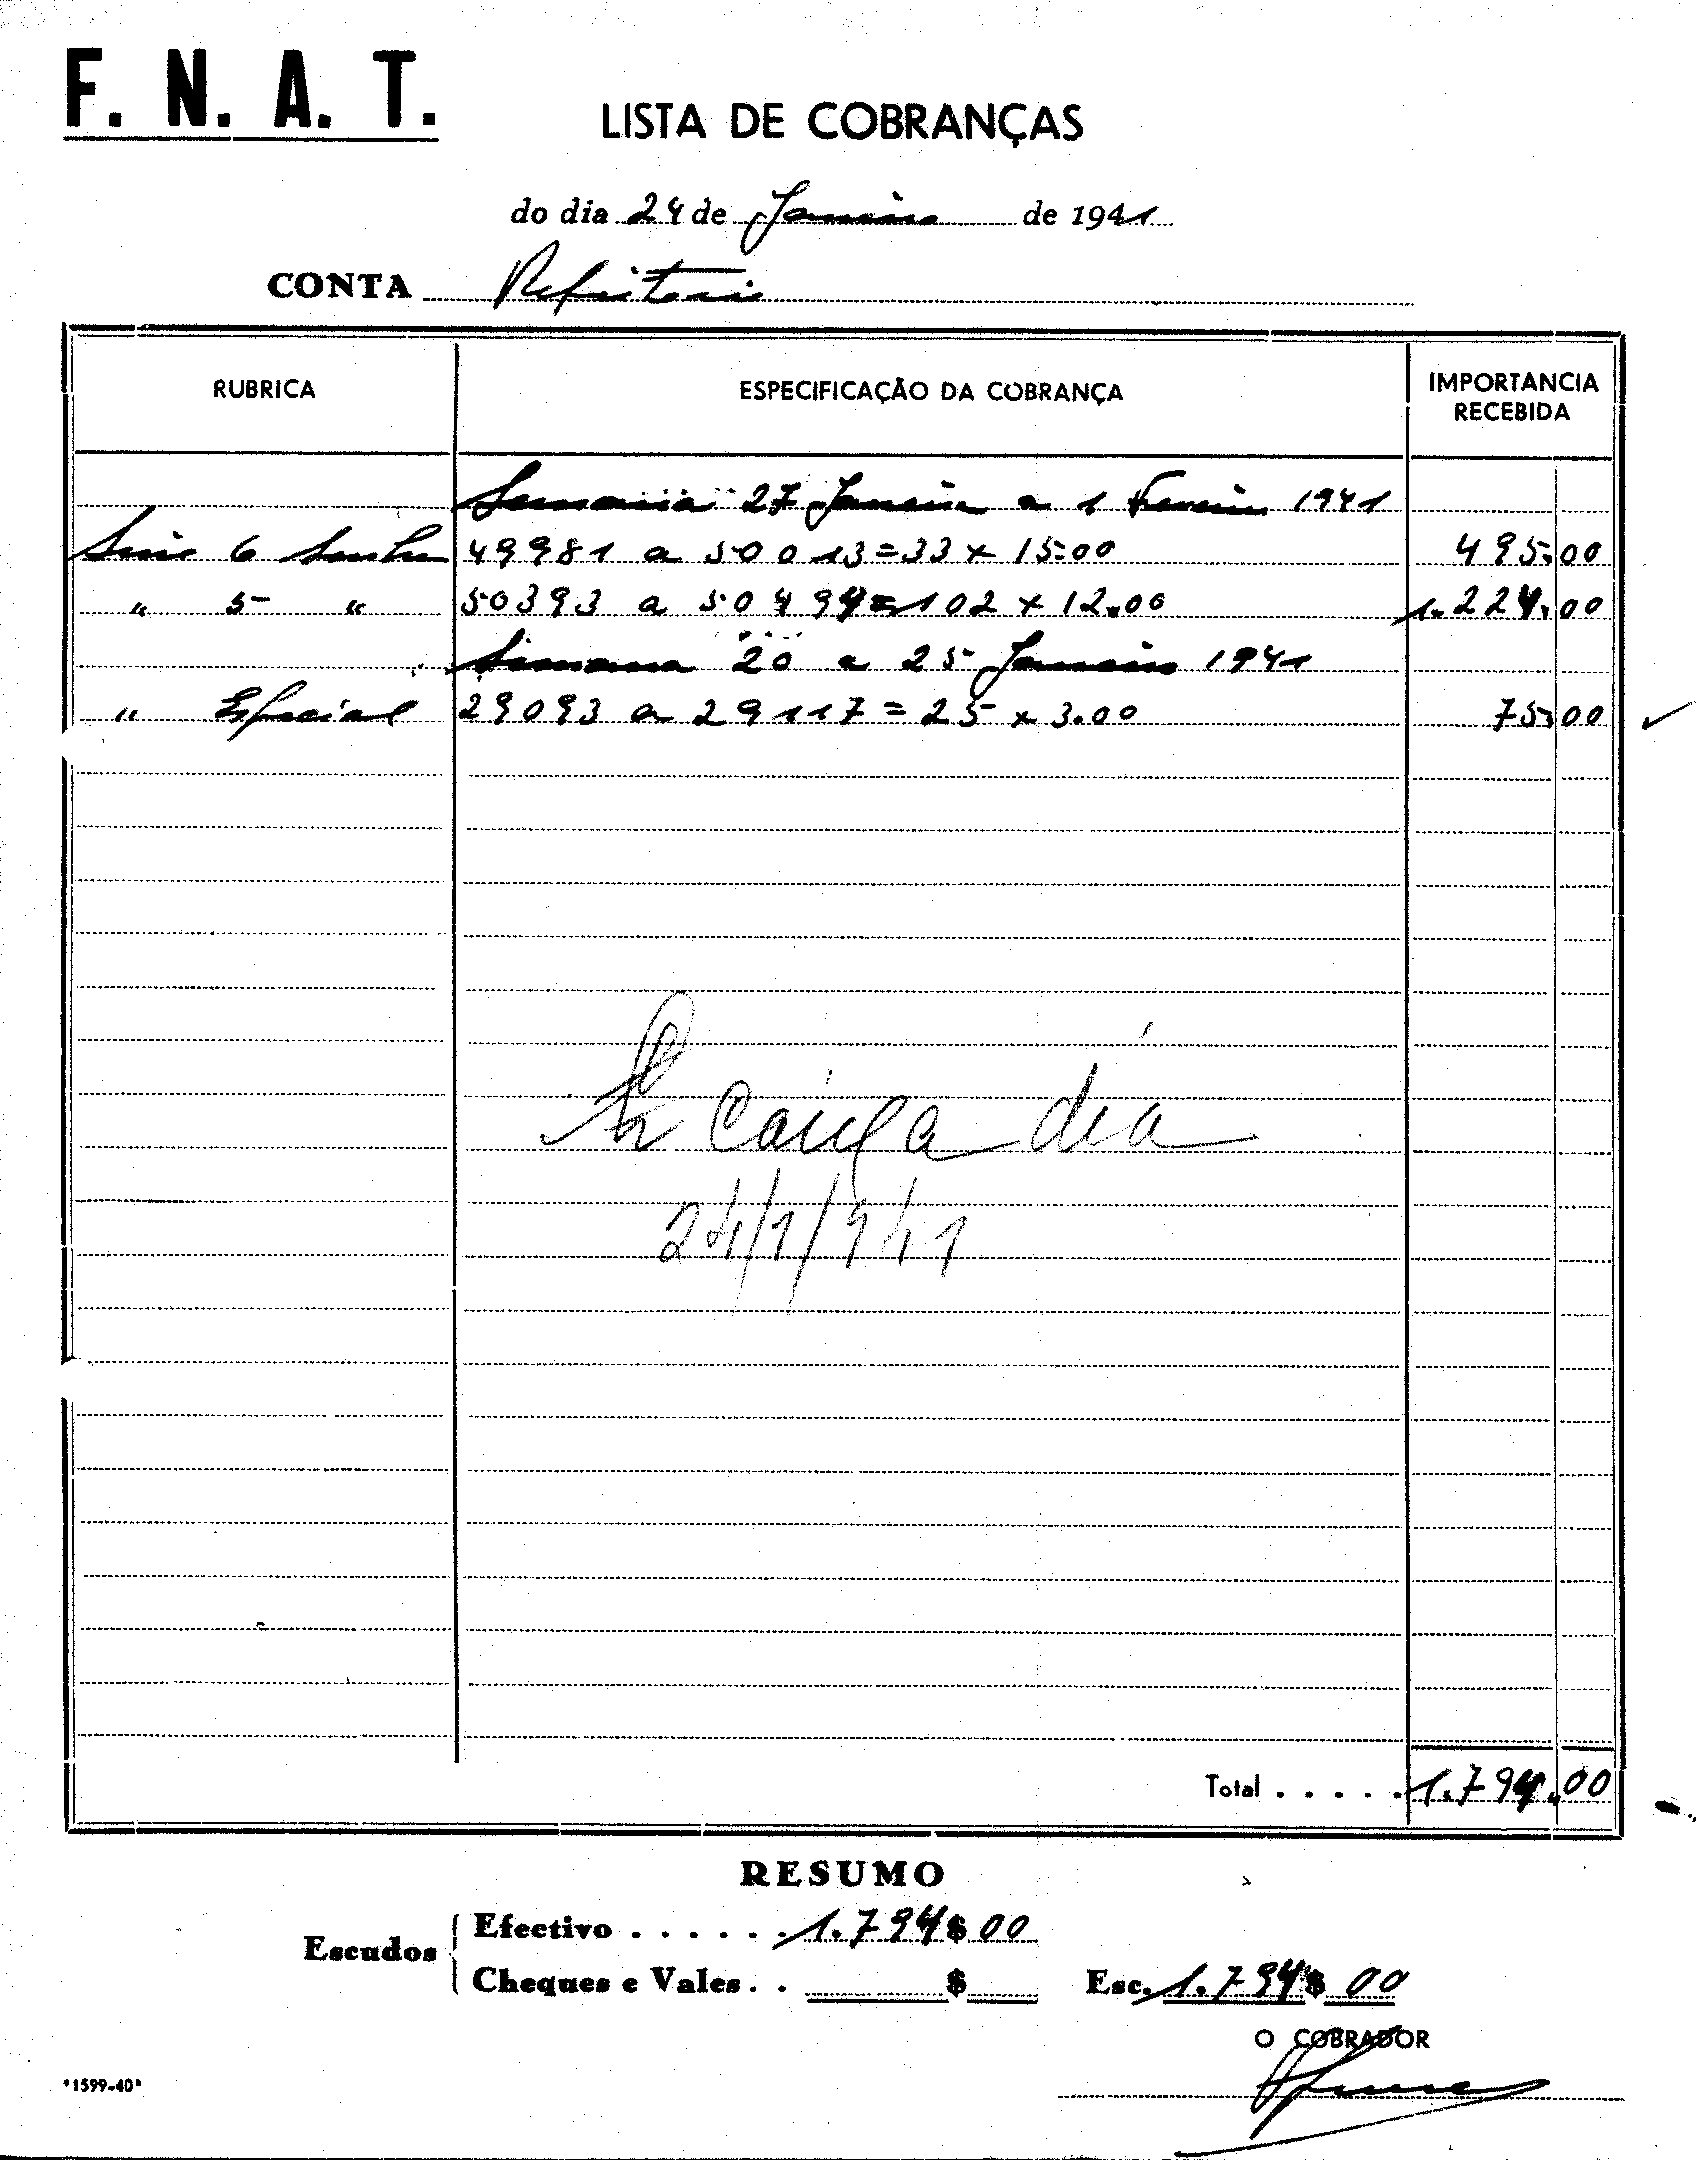 F. N. A. T.
LISTA DE COBRANÇAS
do dia 24 de Janeiro de 1941
CONTA Refeitorio
RUBRICA ESPECIFICAÇÃO DA COBRANÇA IMPORTANCIA RECEBIDA
Semana 27 Janeiro a 1 Fevereiro 1941
Serie 6 Senhas 49981 a 50013=33 x 15.00 495.00
" 5 " 50393 a 50494=102 x 12.00 1.224.00
Semana 20 a 25 Janeiro 1941
" Especial 29093 a 29117=25 x 3.00 75.00
Caixa dia
24/1/941
Total . . . . . 1.794.00
RESUMO
Escudos
Efectivo . . . . . . 1.794$00
Cheques e Vales . . $ Esc. 1.794$00
O COBRADOR
"1599-40"